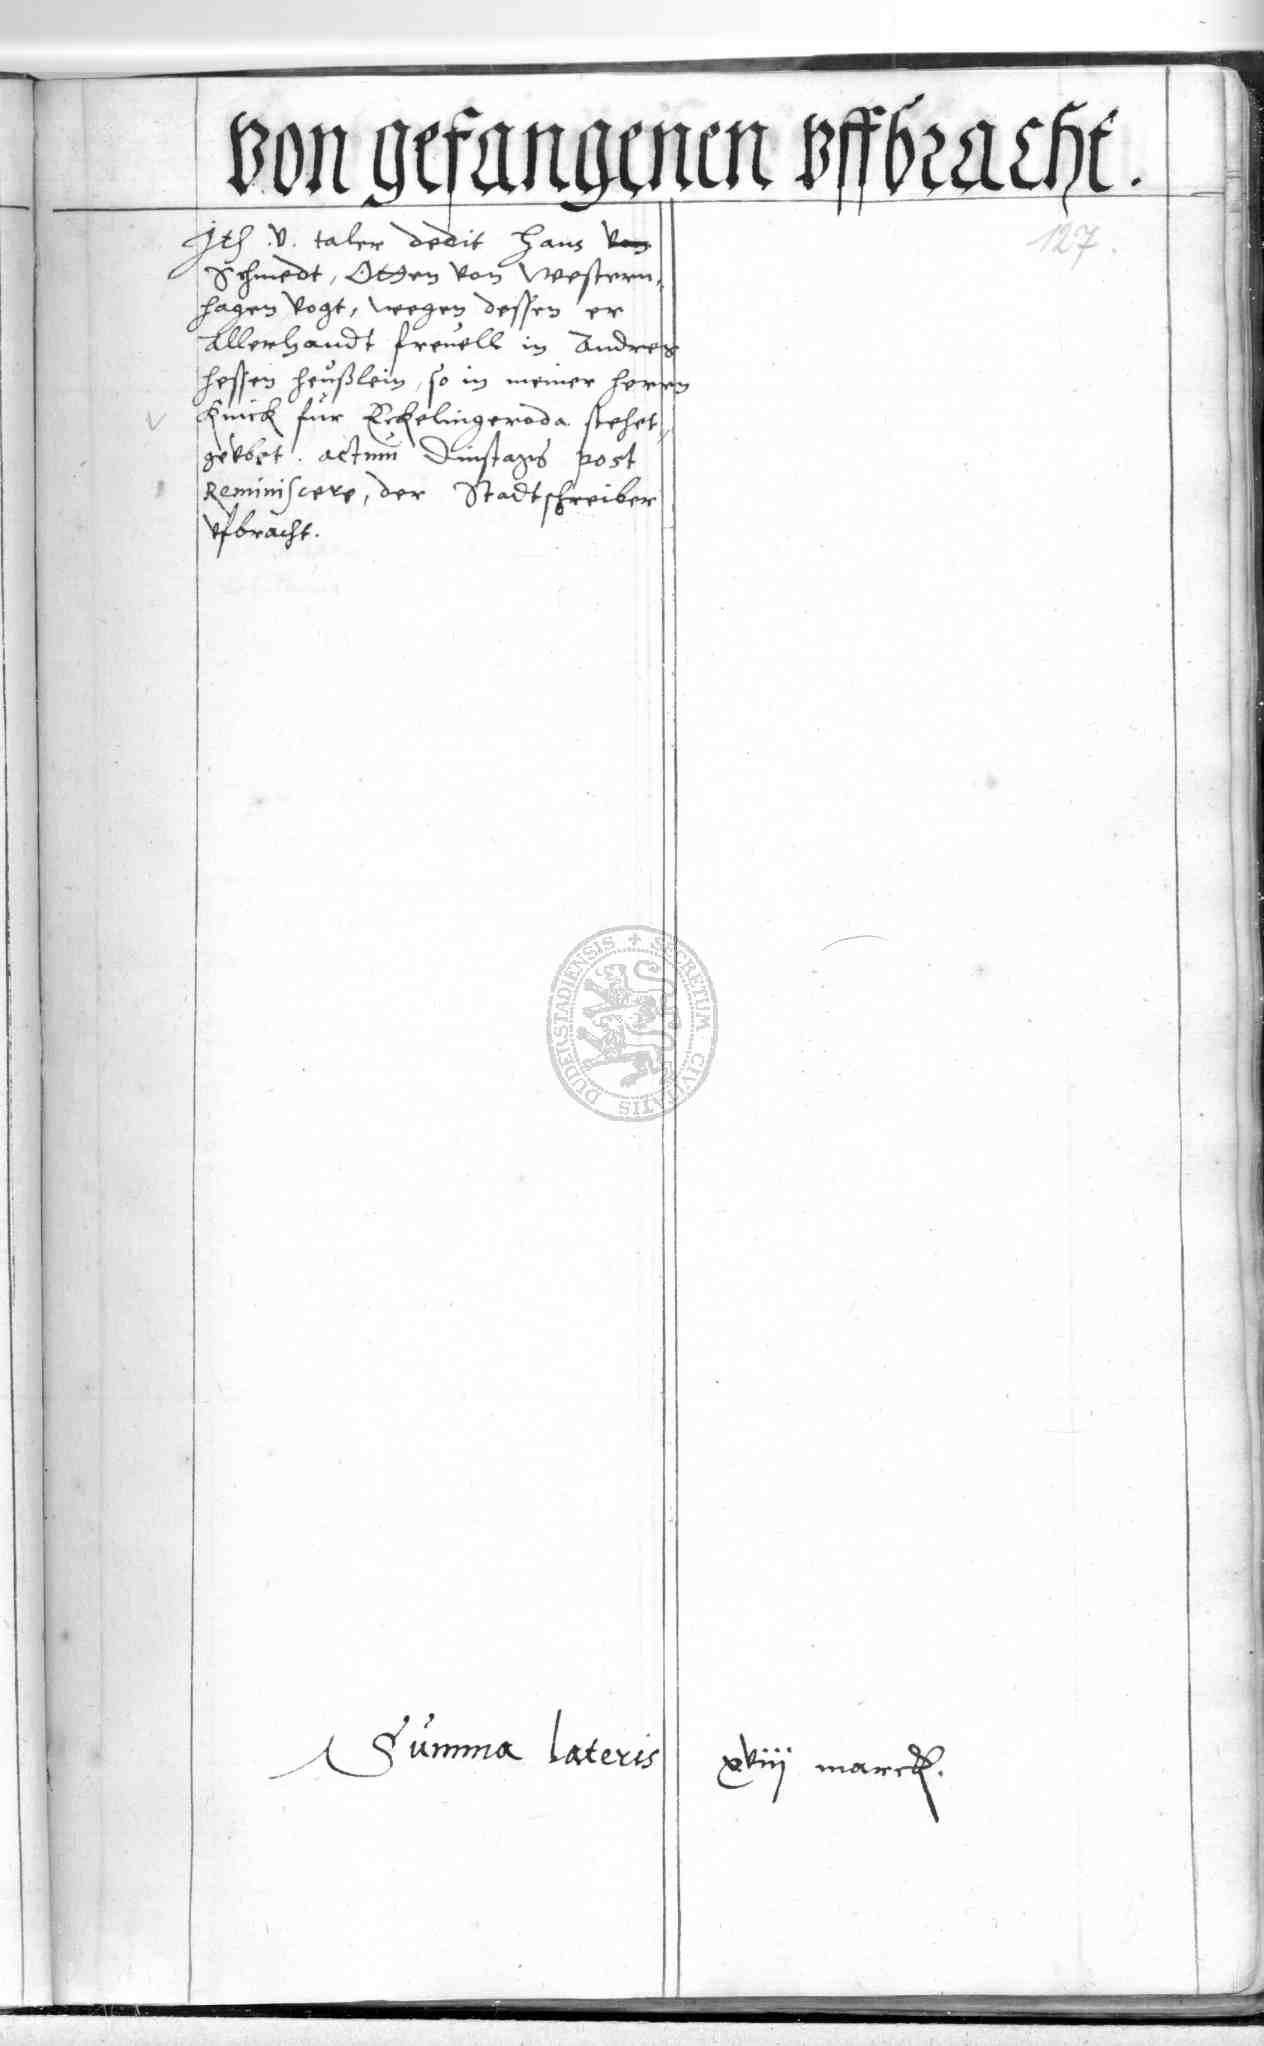 von gefangenen vffbracht.
127.
Ite .v. taler dedit Hans von
Schmedt, Otten von Western„
hagen Vogt, wegen dessen er
Allerhandt freuell in Andres
hessen heußlein, so in meiner herrn
Knick für Eckelingeroda stehet„
geVbet. actum Dinstags post
Reminiscere, der Stadtschreiber
vfbracht.
DUDERSTADIENSIS + SECRETUM CIVITATIS
Summa lateris xviij marck.